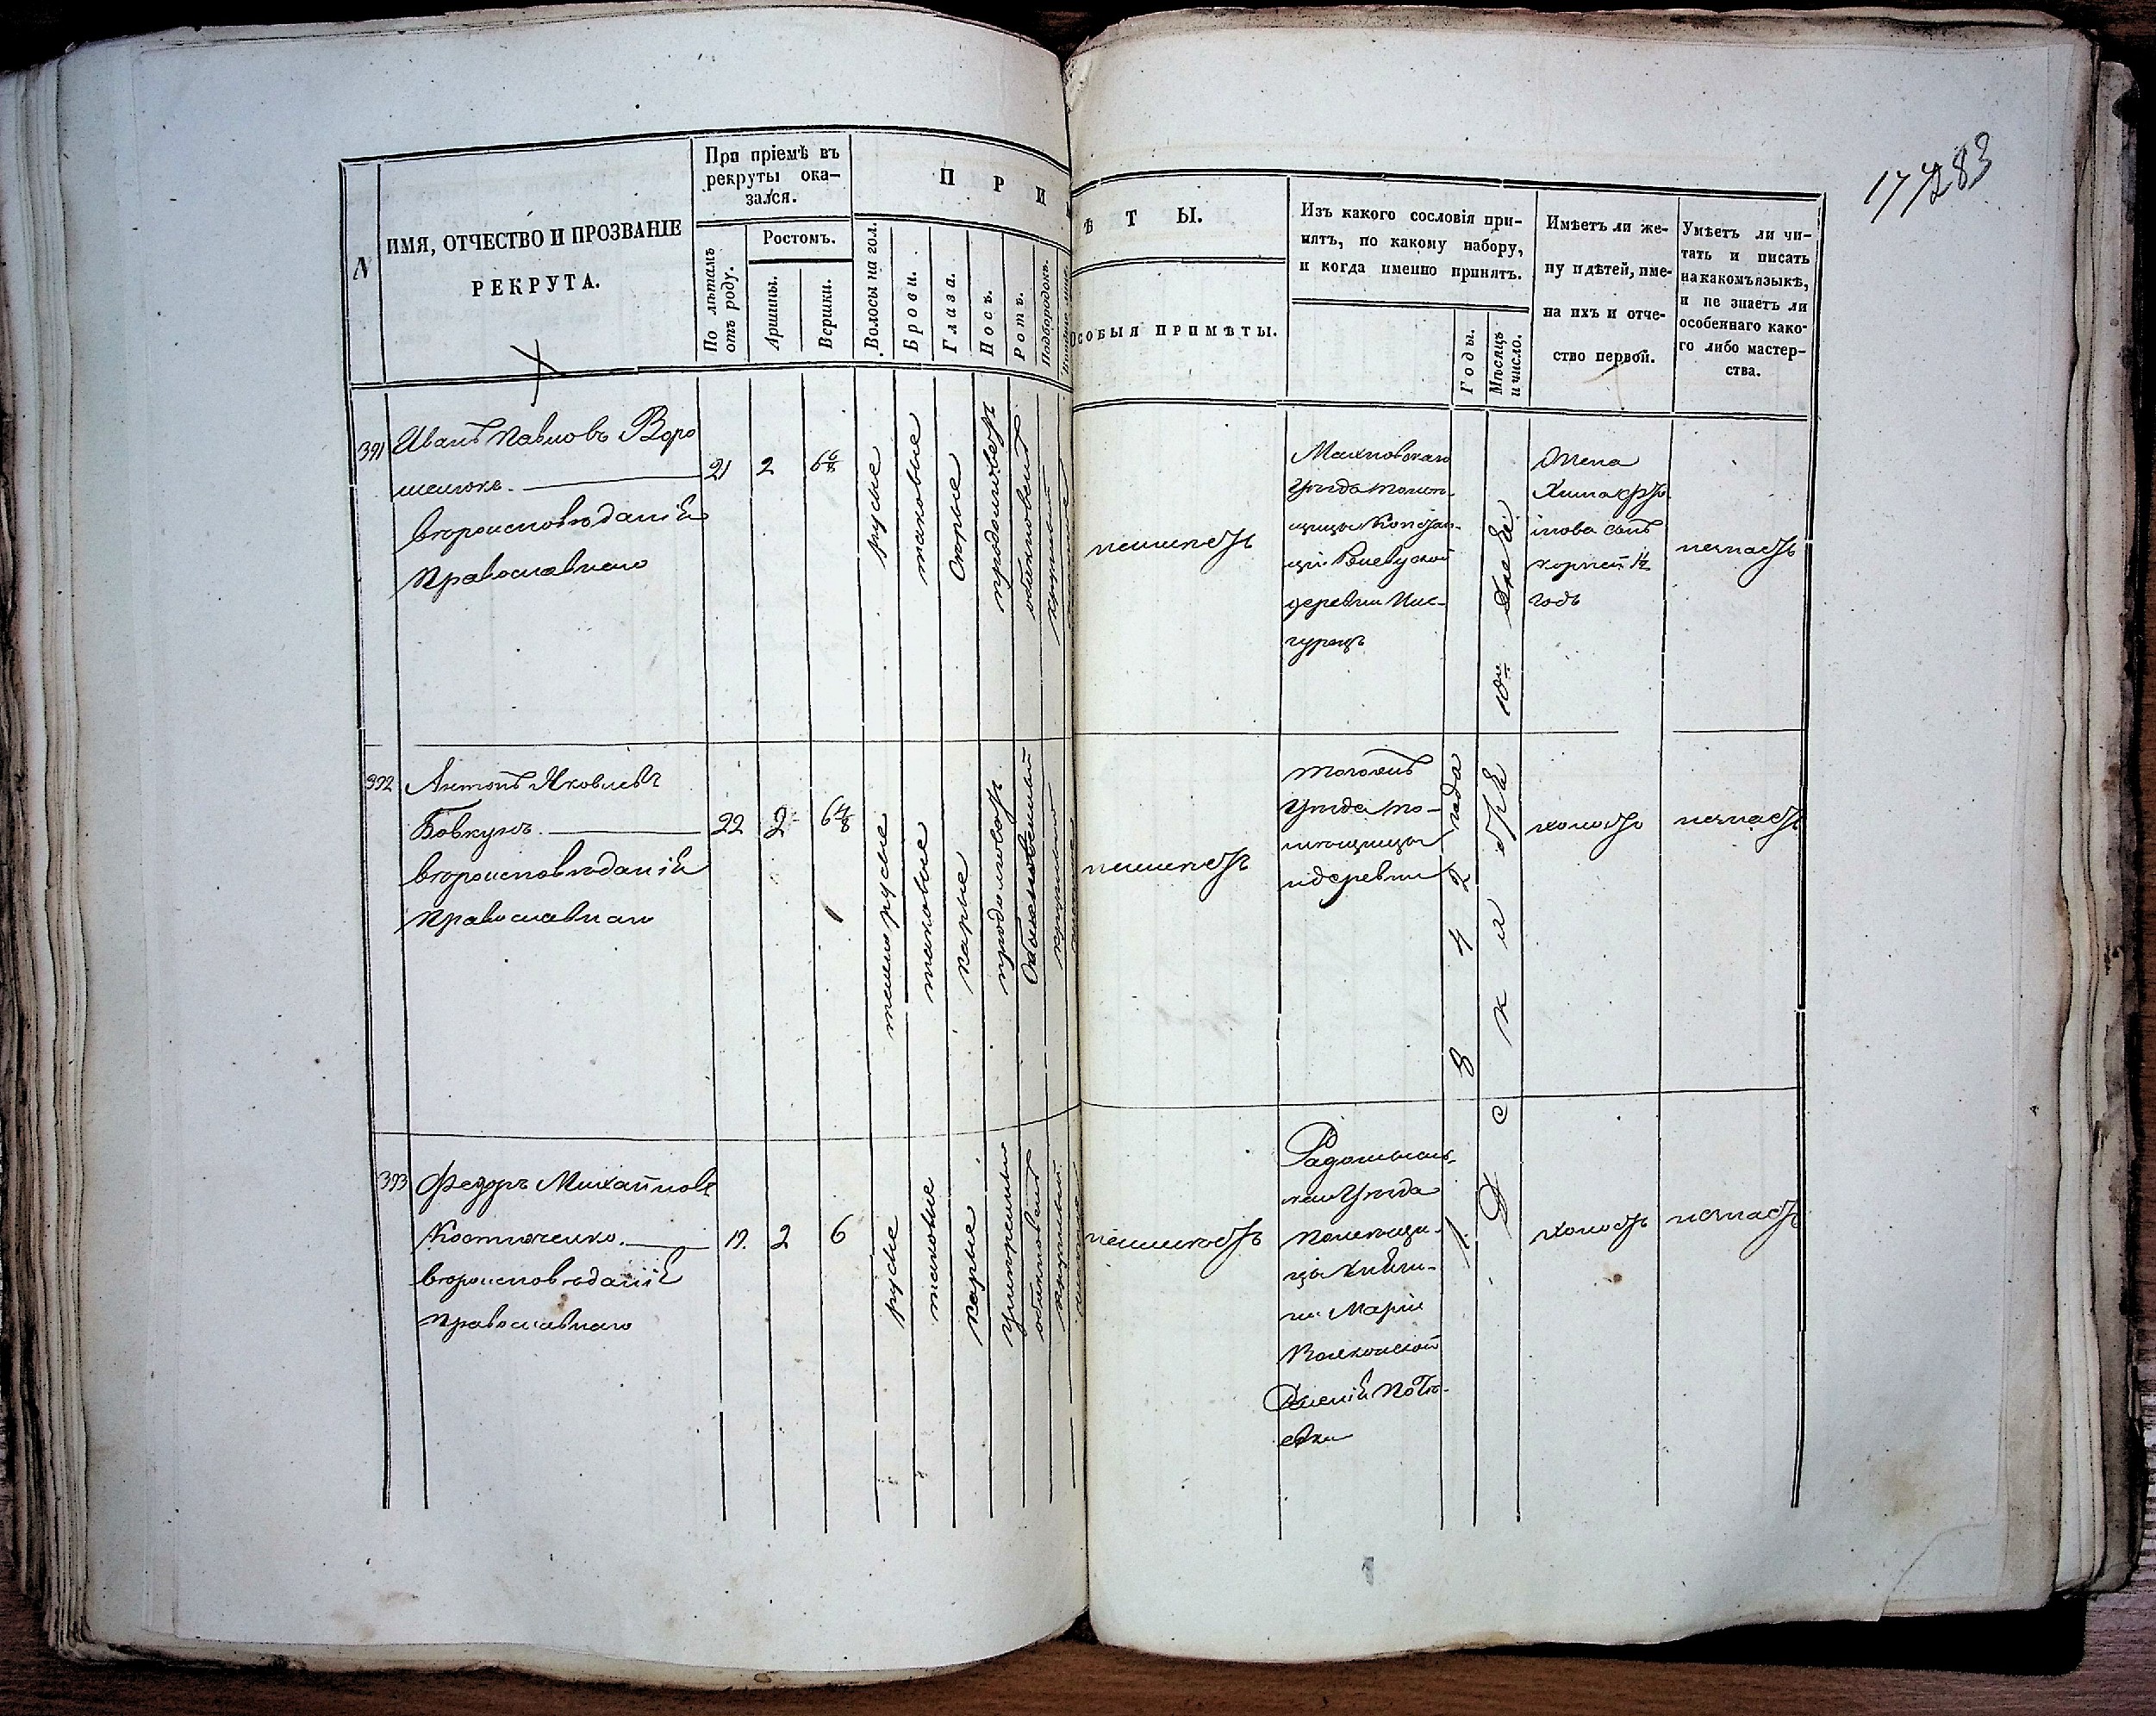 177283
N
ИМЯ, ОТЧЕСТВО И ПРОЗВАНІЕ
РЕКРУТА.
При пріемѣ въ
рекруты ока-
зался.
По лѣтамъ
отъ роду.
Ростомъ.
Аршины.
Вершки.
П Р И
Волосы на гол.
Брови.
Глаза.
Носъ.
Ротъ.
Подбородокъ.
Ѣ Т Ы.
ОСОБЫЯ ПРИМѢТЫ.
Изъ какого сословія при-
нятъ, по какому набору,
и когда именно принятъ.
Годы.
Мѣсяцъ
и число.
Имѣетъ ли же-
ну и дѣтей, име-
на ихъ и отче-
ство первой.
Умѣетъ ли чи-
тать и писать
на какомъ языкѣ,
и не знаетъ ли
особеннаго како-
го либо мастер-
ства.
391
Иванъ Павловъ Воро
шелюкъ.
вѣроисповѣданія
Православнаго
21
2
6 6/8
русые
таковые
сѣрые
продолговатъ
обыкновенъ
круглый
неимѣетъ
Махновскаго
Уѣзда помѣ-
щицы Констан-
ціи
деревни
Жена
сынъ
корней 1 1/2
годъ
незнаетъ
392
Антонъ Яковлевъ
Бовкунъ.
вѣроисповѣданія
Православнаго
22
2
6 4/8
темнорусые
таковые
карые
продолговатъ
обыкновенный
круглый
неимѣетъ
тогожъ
Уѣзда по-
мѣщицы
и деревни
холостъ
незнаетъ
1842 года
Декабря
10го
393
Федоръ Михайловъ
Костюченко.
вѣроисповѣданія
православнаго
19.
2
6
русые
таковые
карые
умѣренный
обыкновенъ
круглый
неимѣетъ
Радомысль-
скаго Уѣзда
помѣщи-
цы Княги-
ни Маріи
Волконской
холостъ
незнаетъ